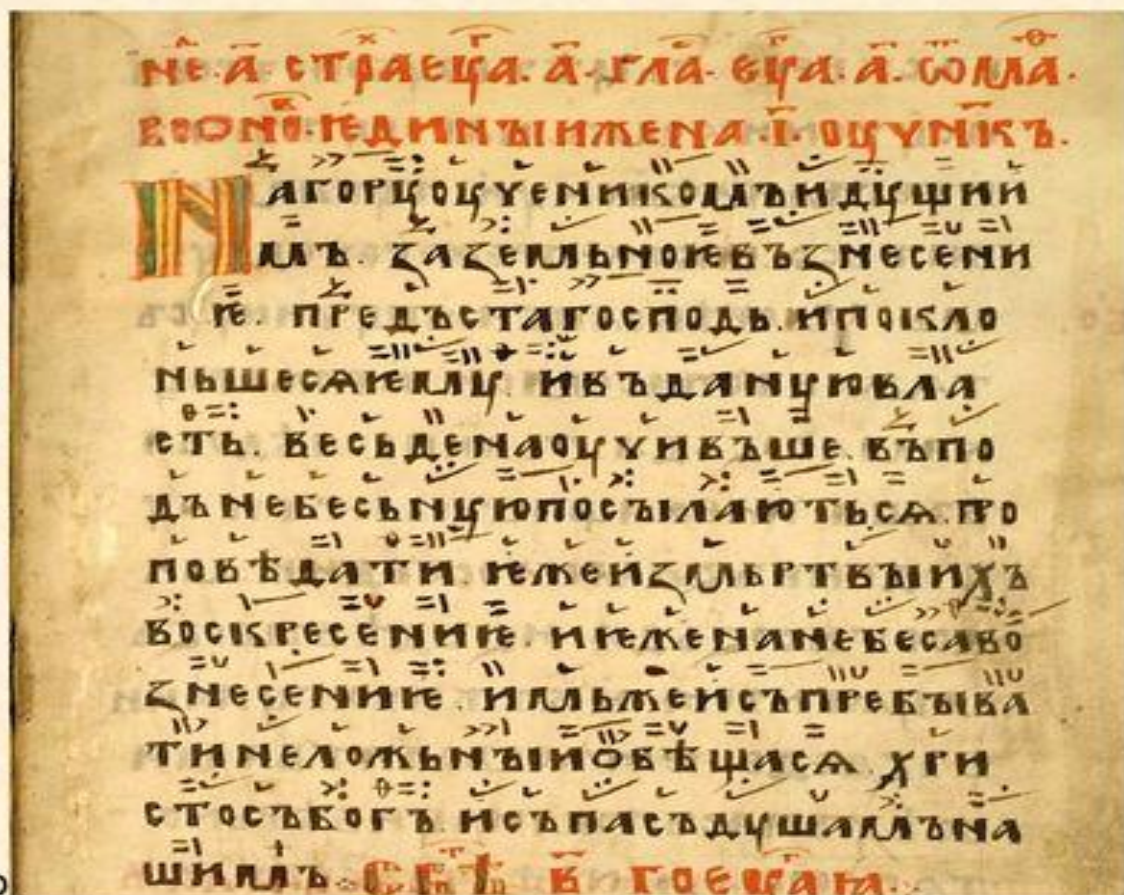 не. а. стр҃аеуг҃а. а҃. гла. еуг҃а. а҃. ѿма.
воон. ѥдинъıижена. і҃. оучн҃къ.
Нагоруоученикомъидущии
мъ. ꙁаꙁемльноѥвъꙁнесени
ѥ. предъстагосподь. ипокло
ньшесѧѥму. ивъдануювла
сть. весьденаоучивъше. въпо
дънебесьнуюпосъıлаютьсѧ. про
повѣдати. ѥжеиꙁмьртвъıихъ
воскресениѥ. иѥженанебесаво
ꙁнесениѥ. имьжеисъпребъıва
тинеложьнъıиобѣщасѧ. хри
стосъбогъ. исъпасъдушамъна
шимъ.